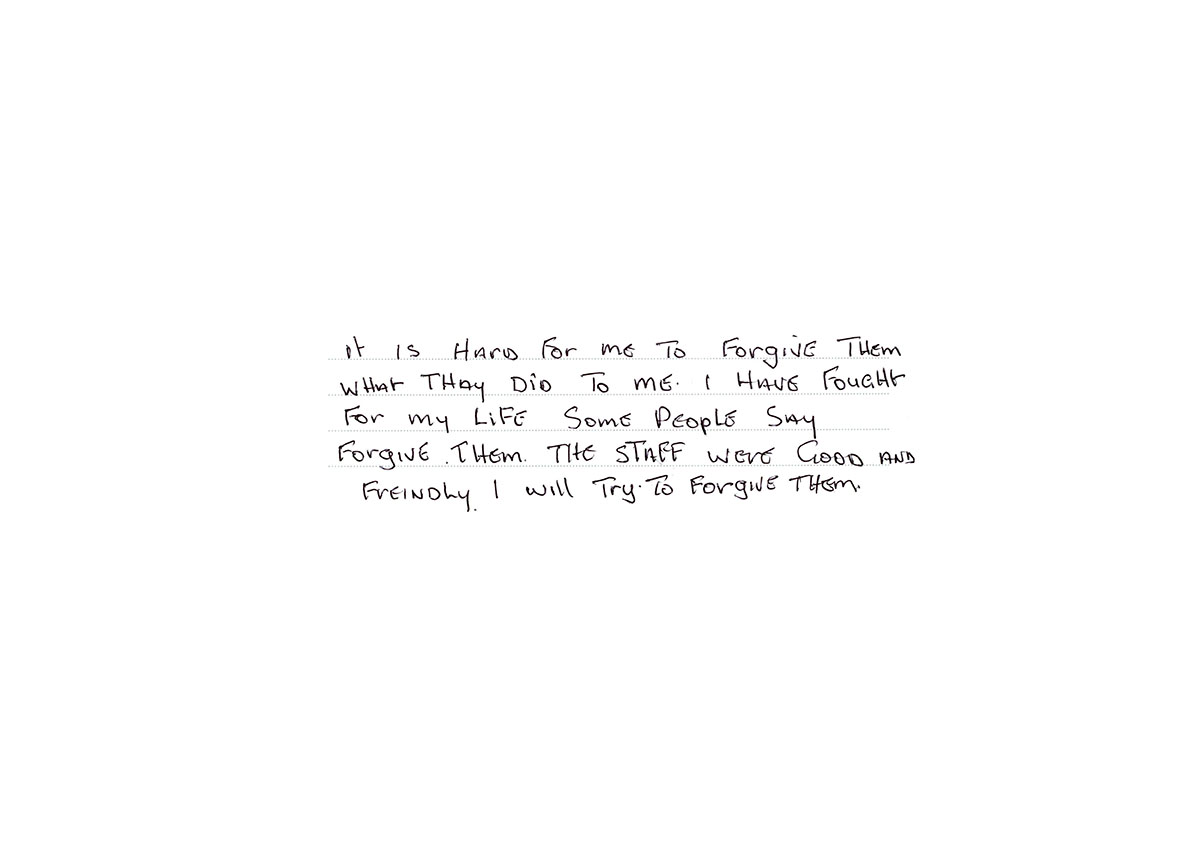 it is HARD For me To ForgivE THEm
WHAt THAy DiD To mE. I HAVE FougHt
For my LiFE SomE PEopLE SAy
ForgivE .THEm. THE STAFF wErE GooD AND
FrEiNDLy. I will Try.To ForgivE THEm.